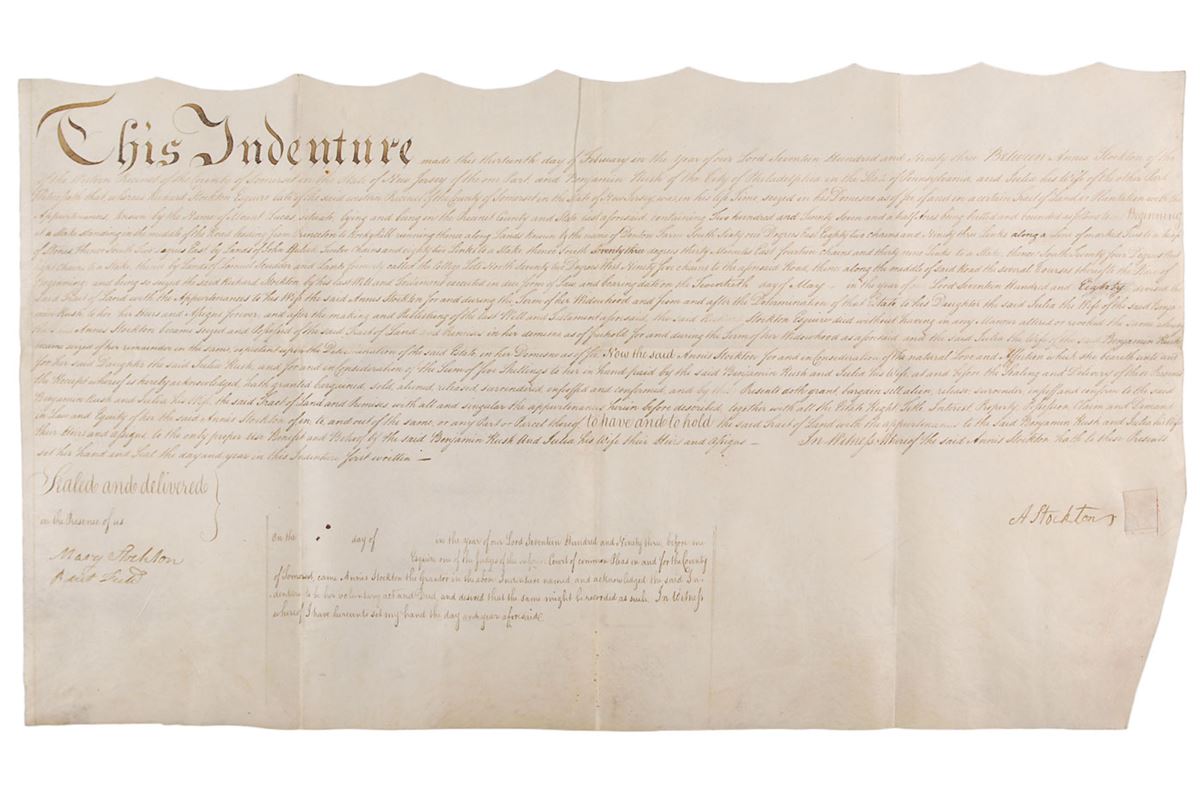 This Indenture made this thirteenth day of February in the Year of our Lord Seventeen Hundred and Ninety three Between Annis Stockton of the
of the Western Precinct of the County of Somerset in the State of New Jersey of the one Part and Benjamin Rush of the City of Philadelphia in the State of Pennsylvania and Julia his Wife of the other Part
Whereas Richard Stockton Esquire late of the said western Precinct of the County of Somerset in the State of New Jersey was in his life Time seized in his Demesne as of fee of and in a certain Tract of Land or Plantation with the
Appurtenances known by the Name of Mount Lucas situate, lying and being in the Precinct County and State last aforesaid containing Two hundred and Twenty Seven and a half Acres being butted and bounded as follows to wit Beginning
at a Stake standing in the middle of the Road leading from Princeton to Rockyhill running thence along Lands known by the name of Denton Farm South Sixty one Degrees East Eighty two chains and Ninety three Links along a Line of marked Trees to a heap
of Stones, thence North East by Lands of Twelve Chains and eighty two Links to a Stake thence South Twenty three degrees thirty Minutes East fourteen chains and thirty nine Links to a Stake, thence South Seventy four Degrees West
eight Chains to a Stake, thence by Lands of and Lands formerly called the College Lots North Seventy two Degrees West Ninety five chains to the aforesaid Road, thence along the middle of said Road the several Courses thereof to the Place of
Beginning and being so seized the said Richard Stockton by his last Will and Testament executed in due form of Law and bearing date on the Twentieth day of May in the year of our Lord Seventeen Hundred and Eighty devised the
said Tract of Land with the Appurtenances to his Wife the said Annis Stockton for and during the Term of her Widowhood and from and after the Determination of that Estate to his Daughter the said Julia the Wife of the said Benja
min Rush to her her Heirs and Assigns forever, and after the making and Publishing of the last Will and Testament aforesaid, the said Stockton Esquire died without having in any Manner altered or revoked the same whereby
the said Annis Stockton became Seized and Possessed of the said Tract of Land and Premises in her demesne as of freehold for and during the Term of her Widowhood as aforesaid and the said Julia the Wife of the said Benjamin Rush
became seized of her remainder in the same, expectant upon the Determination of the said Estate in her Demesne as of fee Now the said Annis Stockton for and in Consideration of the natural Love and Affection which she beareth unto and
for her said Daughter the said Julia Rush, and for and in Consideration of the Sum of five Shillings to her in hand paid by the said Benjamin Rush and Julia his Wife, at and before the Sealing and Delivery of these Presents
the Receipt whereof is hereby acknowledged hath granted bargained sold, aliened released surrendered enfeoffed and confirmed and by these Presents doth grant, bargain sell alien, release surrender, enfeoff and confirm to the said
Benjamin Rush and Julia his Wife the said Tract of Land and Premises with all and singular the appurtenances herein before described, together with all the Estate Right Title Interest Property, Possession Claim and Demand
in Law and Equity of her the said Annis Stockton of in to and out of the same, or any Part or Parcel thereof to have and to hold the said Tract of Land with the appurtenances to the Said Benjamin Rush and Julia his Wife
their Heirs and assigns to the only proper use Benefit and Behoof of the said Benjamin Rush And Julia his Wife their Heirs and Assigns — In Witness Whereof the said Annis Stockton hath to these Presents
set her hand and Seal the day and year in this Indenture first written —
Sealed and delivered
in the Presence of us
A Stockton
Mary Stockton
on the day of in the year of our Lord Seventeen Hundred and Ninety three, before me
Esquire one of the Judges of the Court of common Pleas in and for the County
of Somerset, came Annis Stockton the Grantor in the above Indenture named and acknowledged the said In-
denture to be her voluntary act and Deed, and desired that the same might be recorded as such. In Witness
whereof I have hereunto set my hand the day and year aforesaid